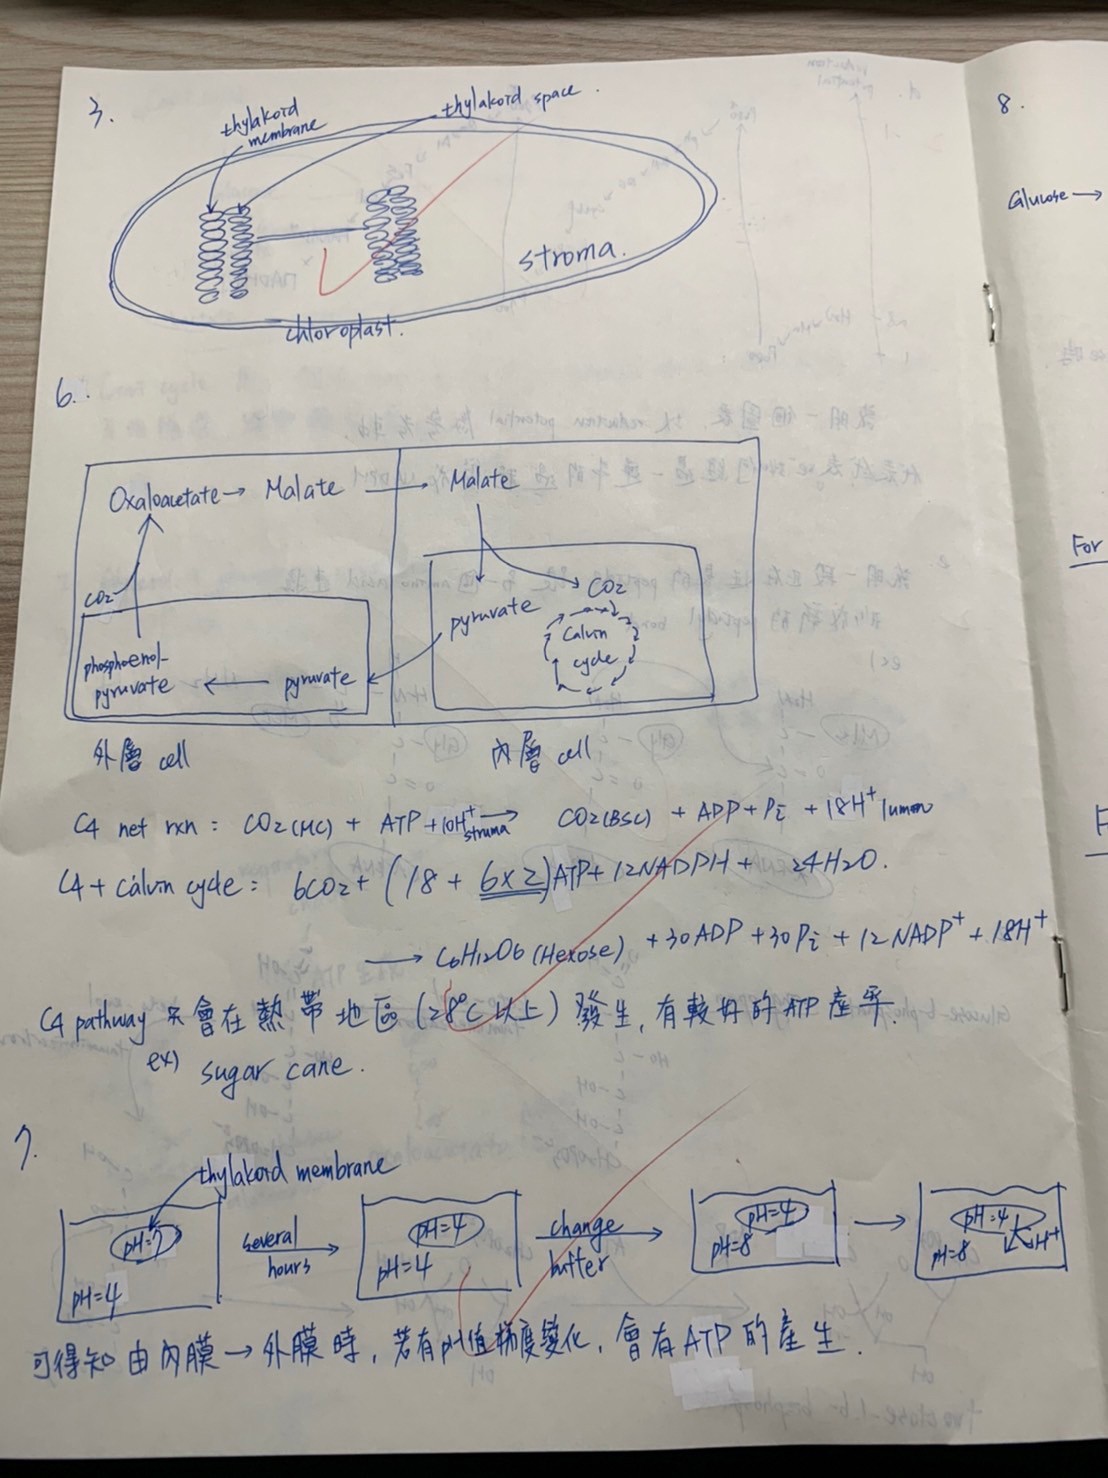 3.
thylakoid
membrane
thylakoid space.
stroma.
chloroplast.
6.
Oxaloacetate → Malate → Malate
CO2
CO2
pyruvate
Calvin
cycle
phosphoenol-
pyruvate ← pyruvate
外層 cell
內層 cell
C4 net rxn = CO2(MC) + ATP + 10H+ stroma → CO2(BSC) + ADP + Pi + 18H+ lumen
C4 + calvin cycle = 6CO2 + (18 + 6x2)ATP + 12NADPH + 24H2O.
→ C6H12O6 (Hexose) + 30ADP + 30Pi + 12NADP+ + 18H+
C4 pathway 只會在熱帶地區 (28°C以上) 發生, 有較好的ATP產率.
ex) sugar cane.
7.
thylakoid membrane
pH=7
pH=4
several
hours
pH=4
pH=4
change
buffer
pH=4
pH=8
pH=4
pH=8
H+
可得知由內膜→外膜時, 若有pH值梯度變化, 會有ATP的產生.
8.
Glucose →
For